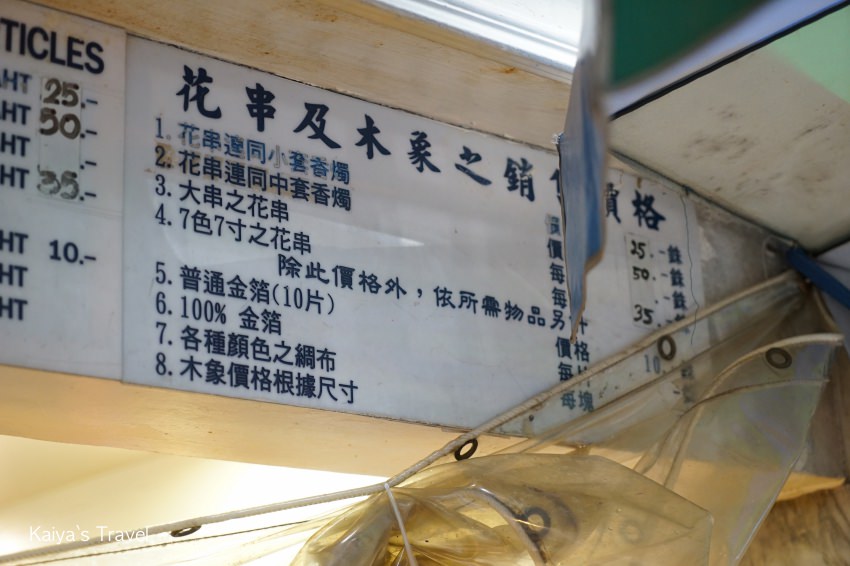 TICLES
AHT 25.-
AHT 50.-
HT .-
HT 35.-
HT 10.-
HT
HT
花串及木象之銷 價格
1. 花串連同小套香燭
2. 花串連同中套香燭 價 25.-銖
3. 大串之花串 每 50.-銖
4. 7色7寸之花串 每 35.-銖
除此價格外，依所需物品另計
5. 普通金箔(10片) 價格 10.
6. 100% 金箔 每片
7. 各種顏色之綢布 每塊
8. 木象價格根據尺寸
Kaiya`s Travel